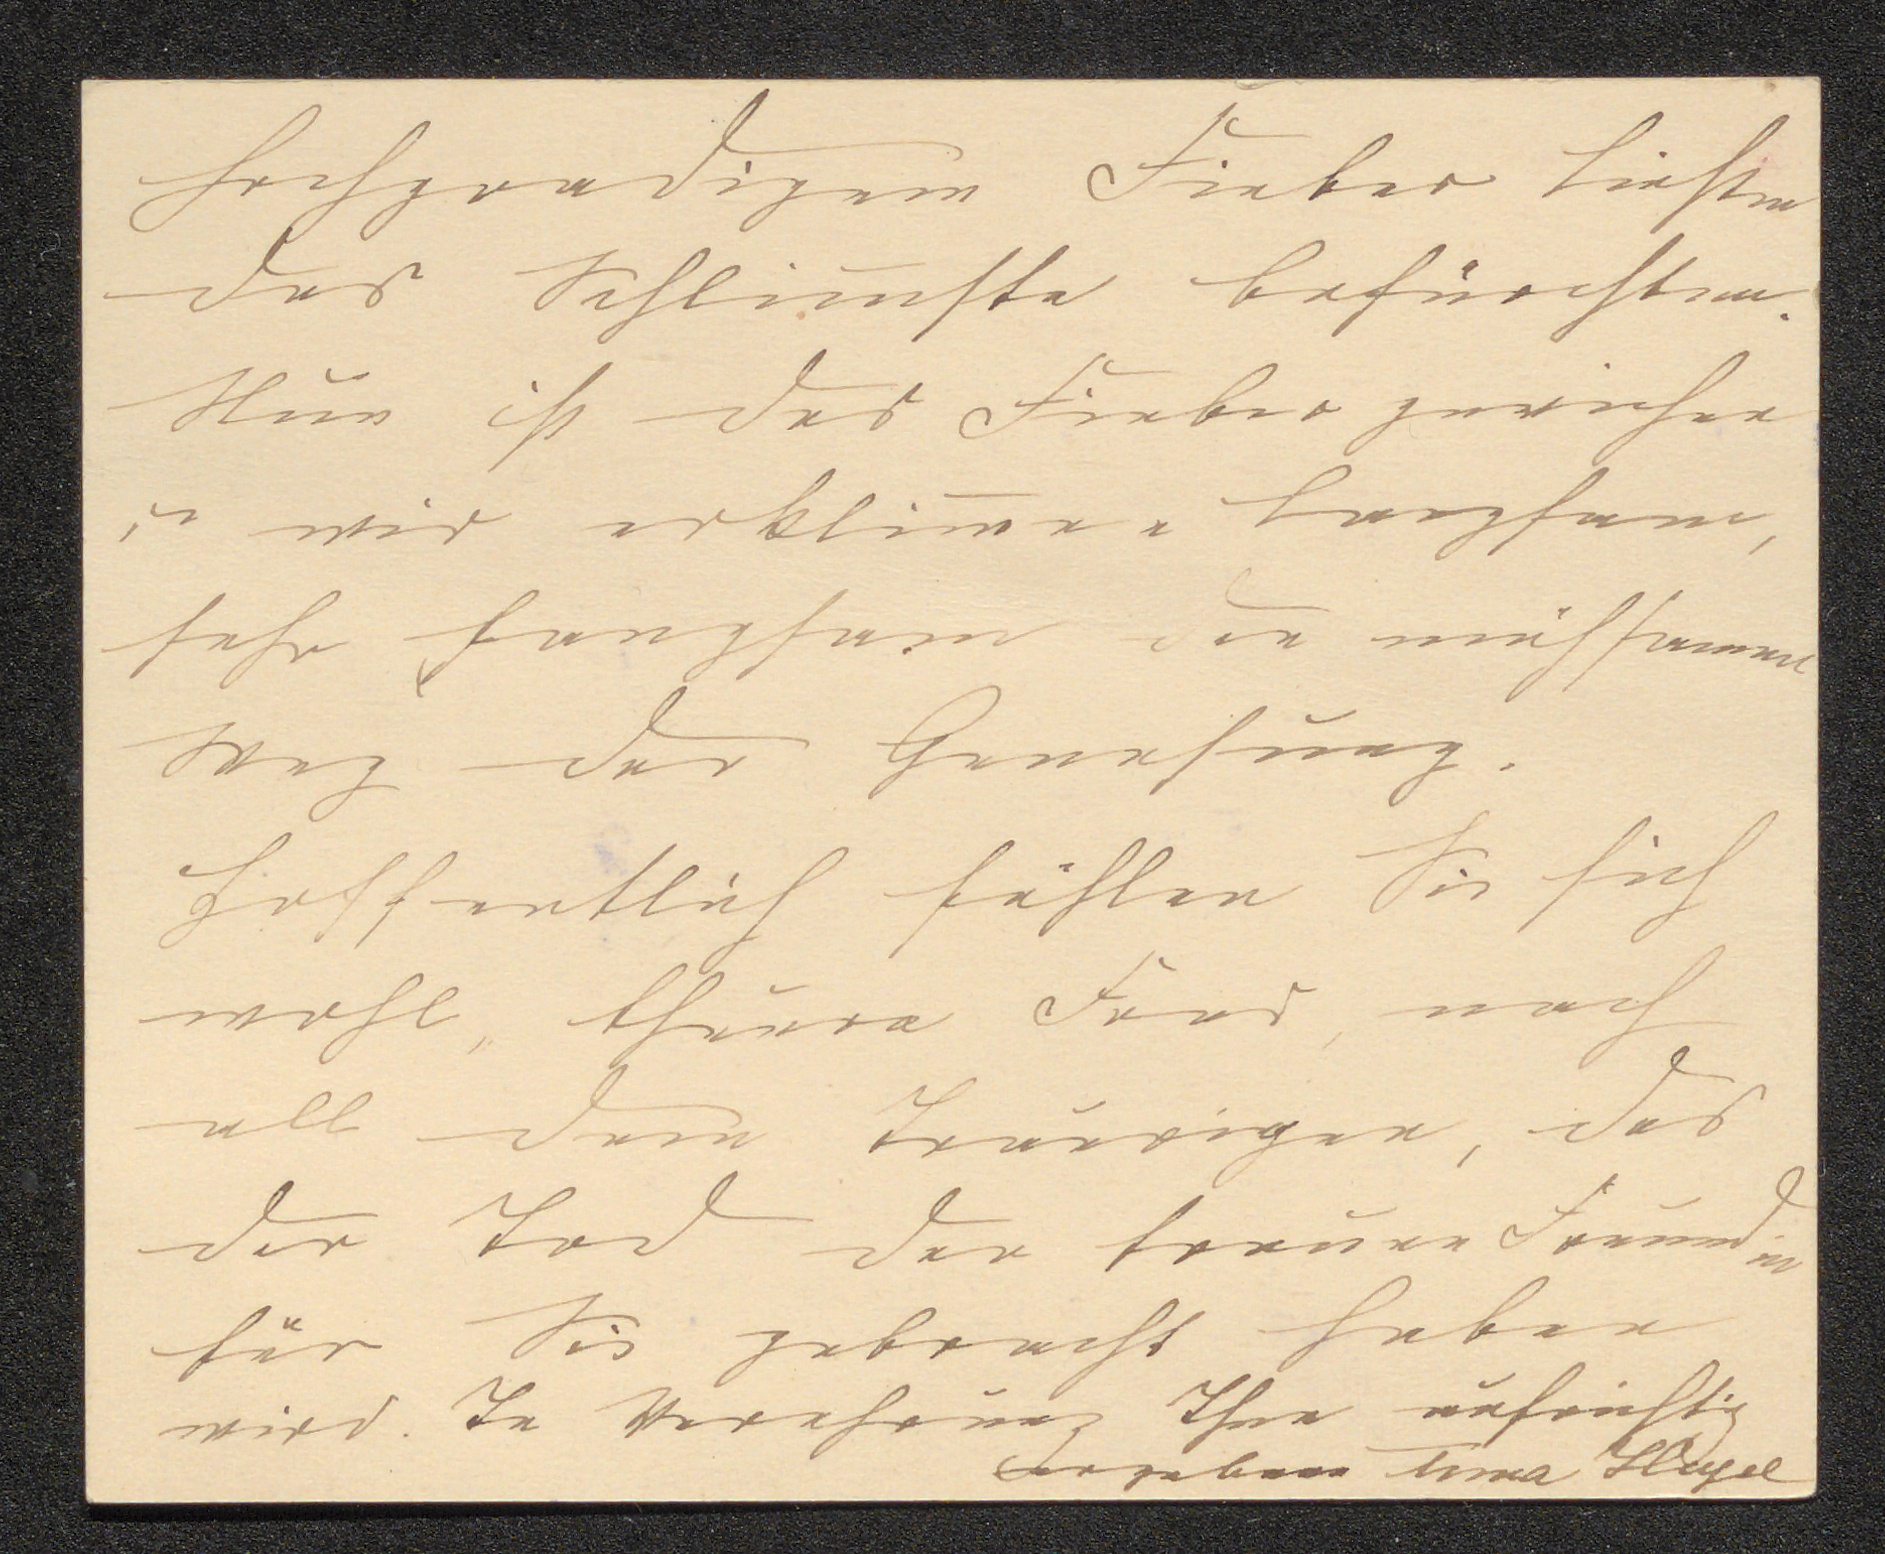 hochgradigem Fieber ließen
das Schlim̅ste befürchten.
Nun ist das Fieber gewichen
u wir erklim̅en langsam,
sehr langsam den mühsamen
Weg der Genesung.
Hoffentlich fühlen Sie sich
wohl, theure Frau, nach
all dem Traurigen, das
der Tod der treuen Freundin
für Sie gebracht haben
wird. In Verehrung Ihre aufrichtig
ergebene